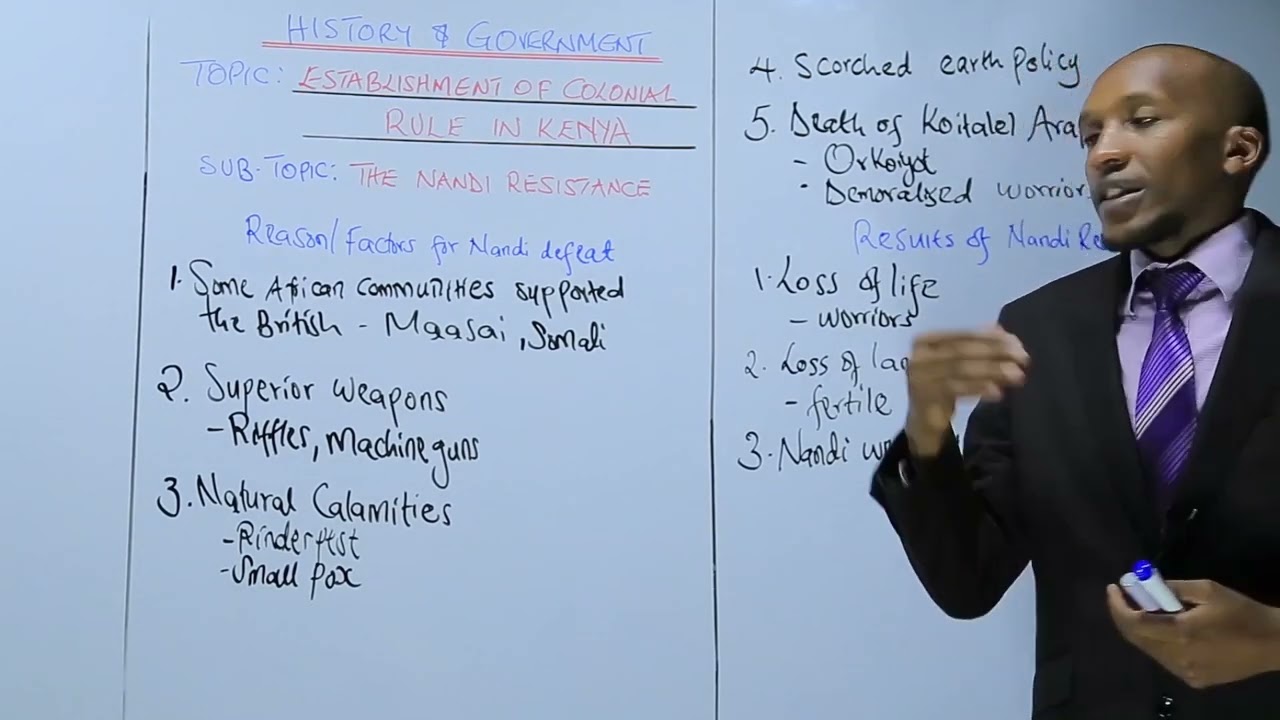 HISTORY & GOVERNMENT
TOPIC: ESTABLISHMENT OF COLONIAL
RULE IN KENYA
SUB-TOPIC: THE NANDI RESISTANCE
Reason/Factors for Nandi defeat
1. Some African Communities supported
the British - Maasai, Somali
2. Superior weapons
- Riffles, Machine guns
3. Natural Calamities
- Rinderpest
- Small pox
4. Scorched earth policy
5. Death of Koitalel Ara
- Orkoiyot
- Demoralised worrior
Results of Nandi Re
1. Loss of life
- worriors
2. Loss of la
- fertile
3. Nandi w